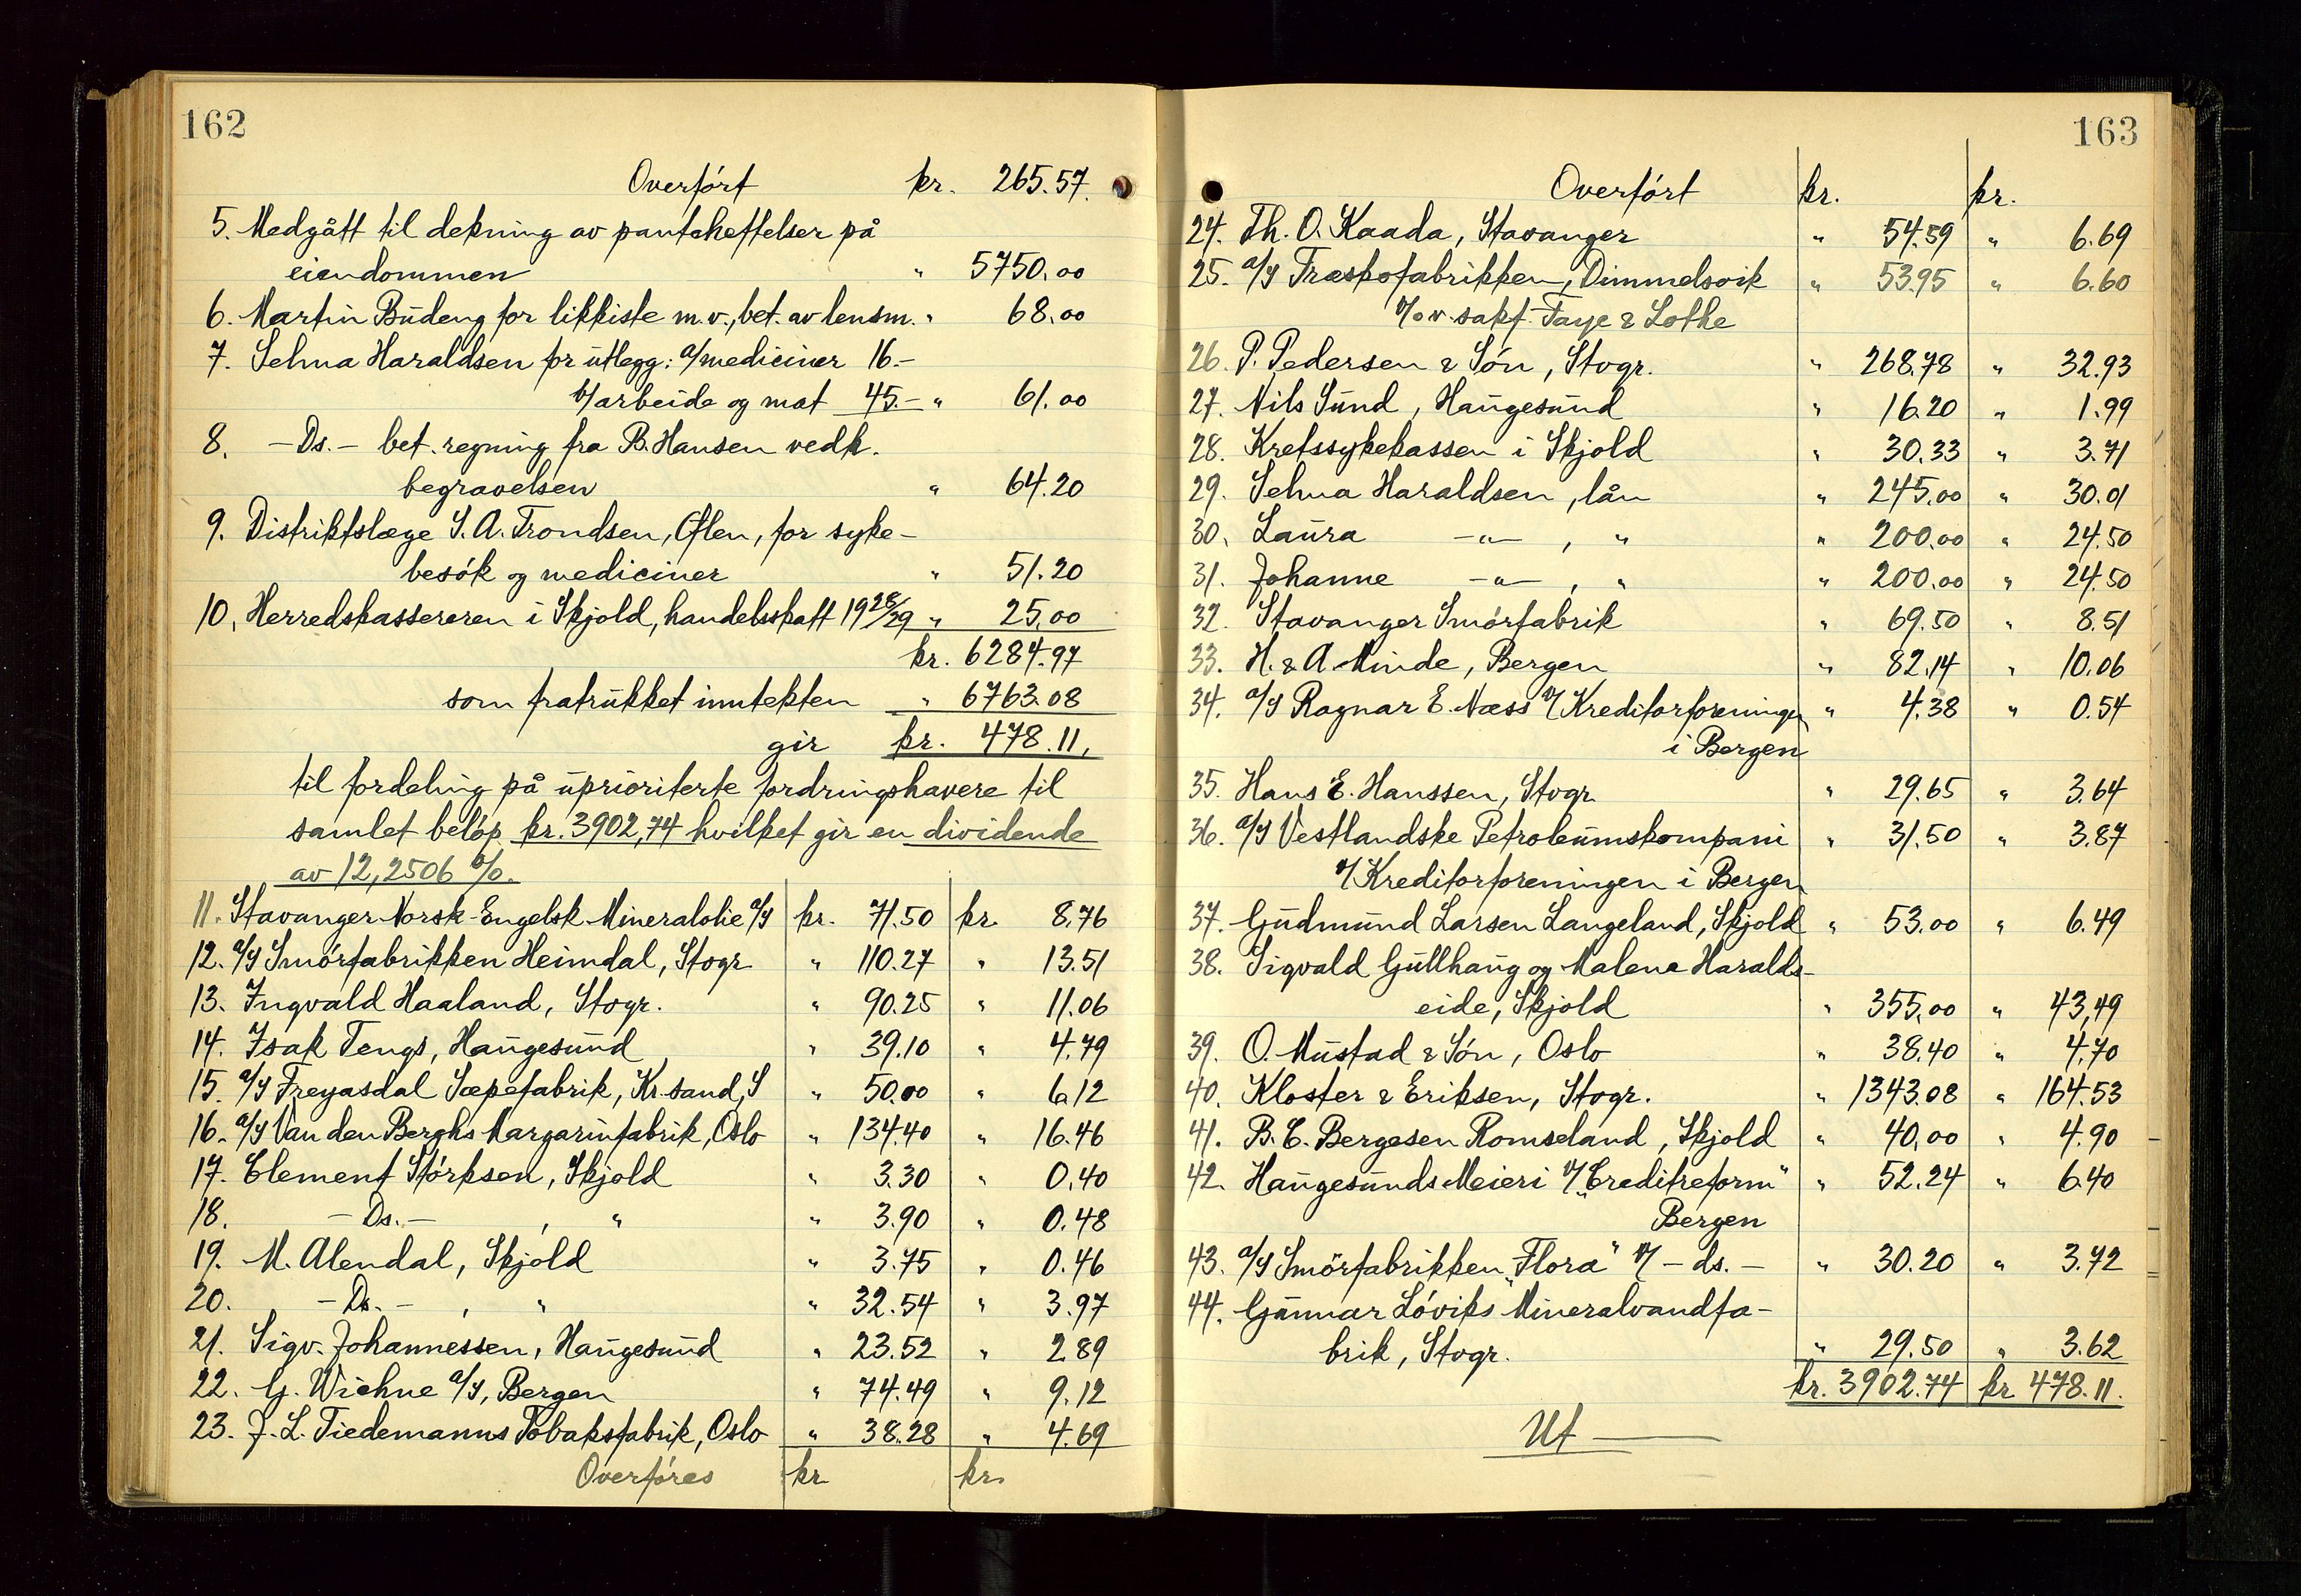 162
Overført kr. 265.57.
5. Medgått til dekning av panteheftelser på
eiendommen " 5750.00
6. Martin Budeng for likkiste m.v., bet. av lensm. " 68.00
7. Selma Haraldsen for utlegg: a/mediciner 16.-
b/arbeide og mat 45.- " 61.00
8. -Ds.- bet. regning fra B. Hansen vedk.
begravelsen " 64.20
9. Distriktslæge S. A. Trondsen, Ølen, for syke-
besøk og mediciner " 51.20
10. Herredskassereren i Skjold, handelsskatt 1928/29 " 25.00
kr. 6284.97
som fratrukket inntekten " 6763.08
gir kr. 478.11.
til fordeling på uprioriterte fordringshavere til
samlet beløp kr. 3902,74 hvilket gir en dividende
av 12,2506 %.
11. Stavanger Norsk-Engelsk Mineralolie a/s kr. 71.50 kr. 8.76
12. a/s Smørfabrikken Heimdal, Stvgr " 110.27 " 13.51
13. Ingvald Haaland, Stvgr. " 90.25 " 11.06
14. Isak Tengs, Haugesund " 39.10 " 4.79
15. a/s Freyasdal Sæpefabrik, Kr.sand, S " 50.00 " 6.12
16. a/s Van den Berghs Margarinfabrik, Oslo " 134.40 " 16.46
17. Clement Størksen, Skjold " 3.30 " 0.40
18. -Ds.- , " " 3.90 " 0.48
19. M. Alendal, Skjold " 3.75 " 0.46
20. -Ds.- , " " 32.54 " 3.97
21. Sigv. Johannessen, Haugesund " 23.52 " 2.89
22. G. Wiehne a/s, Bergen " 74.49 " 9.12
23. J. L. Tiedemanns Tobaksfabrik, Oslo " 38.28 " 4.69
Overføres kr kr.
163
Overført kr. kr.
24. Th. O. Kaada, Stavanger " 54.59 " 6.69
25. a/s Træskofabrikken, Dimmelsvik " 53.95 " 6.60
v/o.r.sakf. Faye & Lothe
26. P. Pedersen & Søn, Stvgr. " 268.78 " 32.93
27. Nils Sund, Haugesund " 16.20 " 1.99
28. Kretssykekassen i Skjold " 30.33 " 3.71
29. Selma Haraldsen, lån " 245.00 " 30.01
30. Laura -"- , " " 200.00 " 24.50
31. Johanne -"- , " " 200.00 " 24.50
32. Stavanger Smørfabrik " 69.50 " 8.51
33. H. & A. Minde, Bergen " 82.14 " 10.06
34. a/s Ragnar E. Næss v/Kreditorforeningen " 4.38 " 0.54
i Bergen
35. Hans E. Hanssen, Stvgr. " 29.65 " 3.64
36. a/s Vestlandske Petroleumskompani " 31.50 " 3.87
v/Kreditorforeningen i Bergen
37. Gudmund Larsen Langeland, Skjold " 53.00 " 6.49
38. Sigvald Gullhaug og Malene Haralds-
eide, Skjold " 355.00 " 43,49
39. O. Mustad & Søn, Oslo " 38.40 " 4.70
40. Kloster & Eriksen, Stvgr. " 1343.08 " 164.53
41. B. C. Bergesen Romseland, Skjold " 40.00 " 4.90
42. Haugesunds Meieri v/"Creditreform" " 52.24 " 6.40
Bergen
43. a/s Smørfabrikken "Flora" v/ -ds.- " 30.20 " 3.72
44. Gunnar Løviks Mineralvandfa-
brik, Stvgr. " 29.50 " 3.62
kr. 3902.74 kr 478.11.
Ut